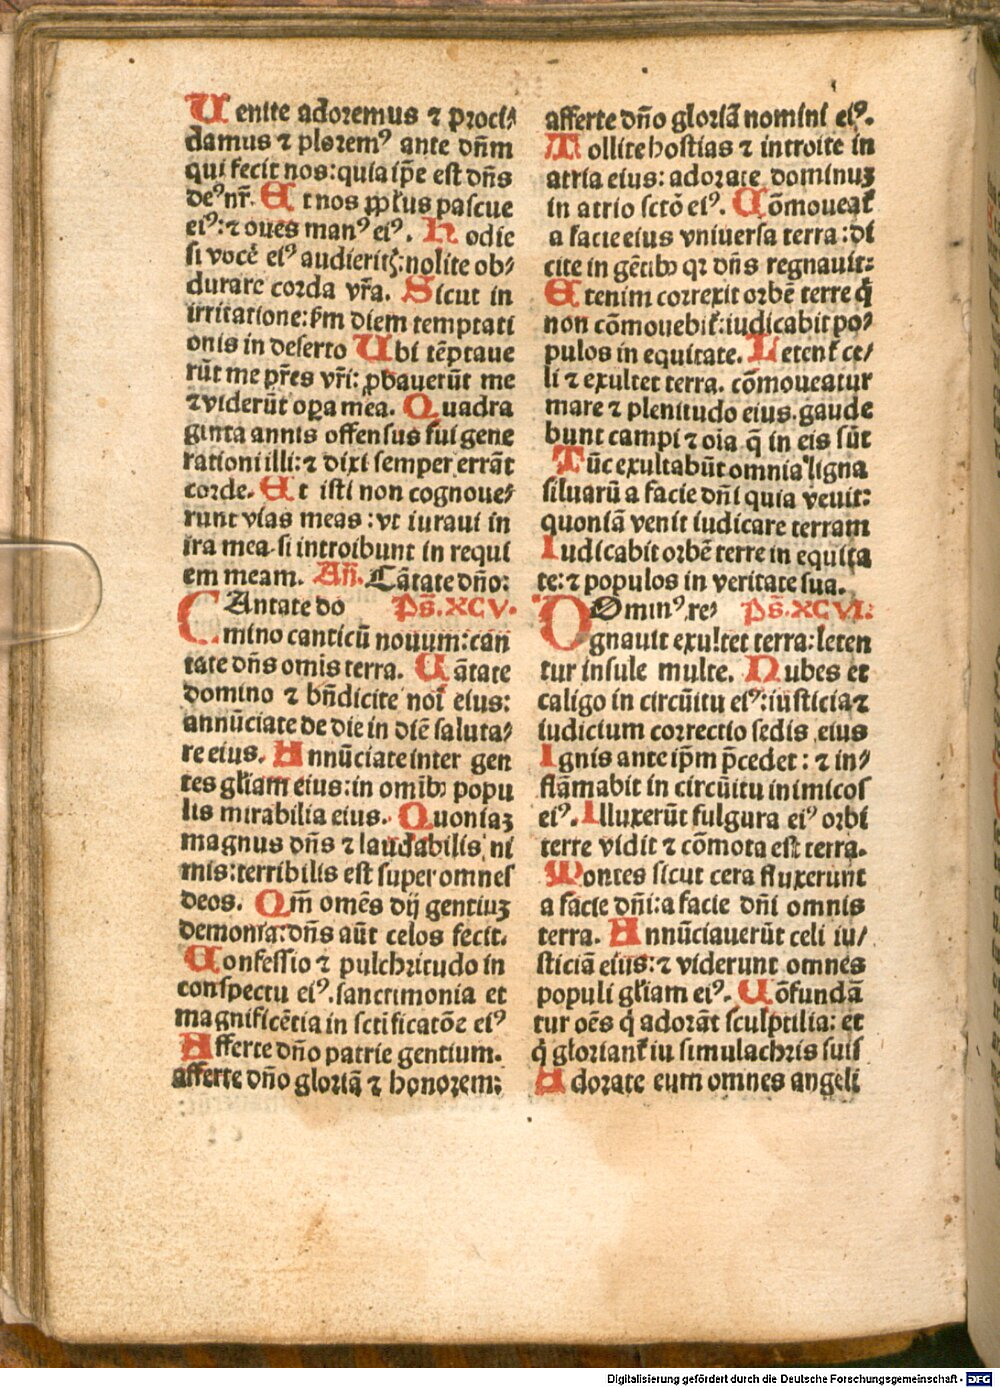 Uenite adoremus ⁊ proci⸗
damus ⁊ plorem⁹ ante dn̄m
qui fecit nos: quia ip̄e est dn̄s
de⁹ nr̄. Et nos ꝓpl̓us pascue
ei⁹: ⁊ oues man⁹ ei⁹. Hodie
si vocē ei⁹ audieritꝭ: nolite ob⸗
durare corda vr̄a. Sicut in
irritatione: ẜm diem temptati
onis in deserto Ubi tēptaue
rūt me pr̄es vr̄i: ꝓbauerūt me
⁊ viderūt oꝑa mea. Quadra
ginta annis offensus fui gene
rationi illi: ⁊ dixi semper errāt
corde. Et isti non cognoue⸗
runt vias meas: vt iuraui in
ira mea. si introibunt in requi
em meam. An̄. Cātate dn̄o:
CAntate do Ps̄. XCV.
mino canticū nouum: can
tate dn̄s omis terra. Cātate
domino ⁊ bn̄dicite noī eius:
annūciate de die in diē saluta⸗
re eius. Annūciate inter gen
tes gl̓iam eius: in omībꝫ popu
lis mirabilia eius. Quoniaꝫ
magnus dn̄s ⁊ laudabilis ni
mis: terribilis est super omnes
deos. Qm̄ omēs dij gentiuꝫ
demonia: dn̄s aūt celos fecit.
Confessio ⁊ pulchritudo in
conspectu ei⁹. sanctimonia et
magnificētia in sctificatōe ei⁹
Afferte dn̄o patrie gentium.
afferte dn̄o gloriā ⁊ honorem:
afferte dn̄o gloriā nomini ei⁹.
Tollite hostias ⁊ introite in
atria eius: adorate dominuꝫ
in atrio sctō ei⁹. Cōmoueat̄
a facie eius vniuersa terra: di
cite in gētibꝫ qꝛ dn̄s regnauit:
Etenim correxit orbē terre q̄
non cōmouebit̄: iudicabit po⸗
pulos in equitate. Letent̄ ce⸗
li ⁊ exultet terra. cōmoueatur
mare ⁊ plenitudo eius. gaude
bunt campi ⁊ oīa q̄ in eis sūt
Tūc exultabūt omnia ligna
siluarū a facie dn̄i quia venit:
quoniā venit iudicare terram
Iudicabit orbē terre in equita
te: ⁊ populos in veritate sua.
DOmin⁹ re⸗ Ps̄. XCVI:
gnauit exultet terra: leten
tur insule multe. Nubes et
caligo in circūitu ei⁹: iusticia ⁊
iudicium correctio sedis eius
Ignis ante ip̄m p̄cedet: ⁊ in⸗
flāmabit in circūitu inimicos
ei⁹. Illuxerūt fulgura ei⁹ orbi
terre vidit ⁊ cōmota est terra.
Montes sicut cera fluxerunt
a facie dn̄i: a facie dn̄i omnis
terra. Annūciauerūt celi iu⸗
sticiā eius: ⁊ viderunt omnes
populi gl̓iam ei⁹. Cōfundā
tur oēs q̇ adorāt sculptilia: et
q̇ gloriant̄ iu simulachris suis
Adorate eum omnes angeli
Digitalisierung gefördert durch die Deutsche Forschungsgemeinschaft - DFG